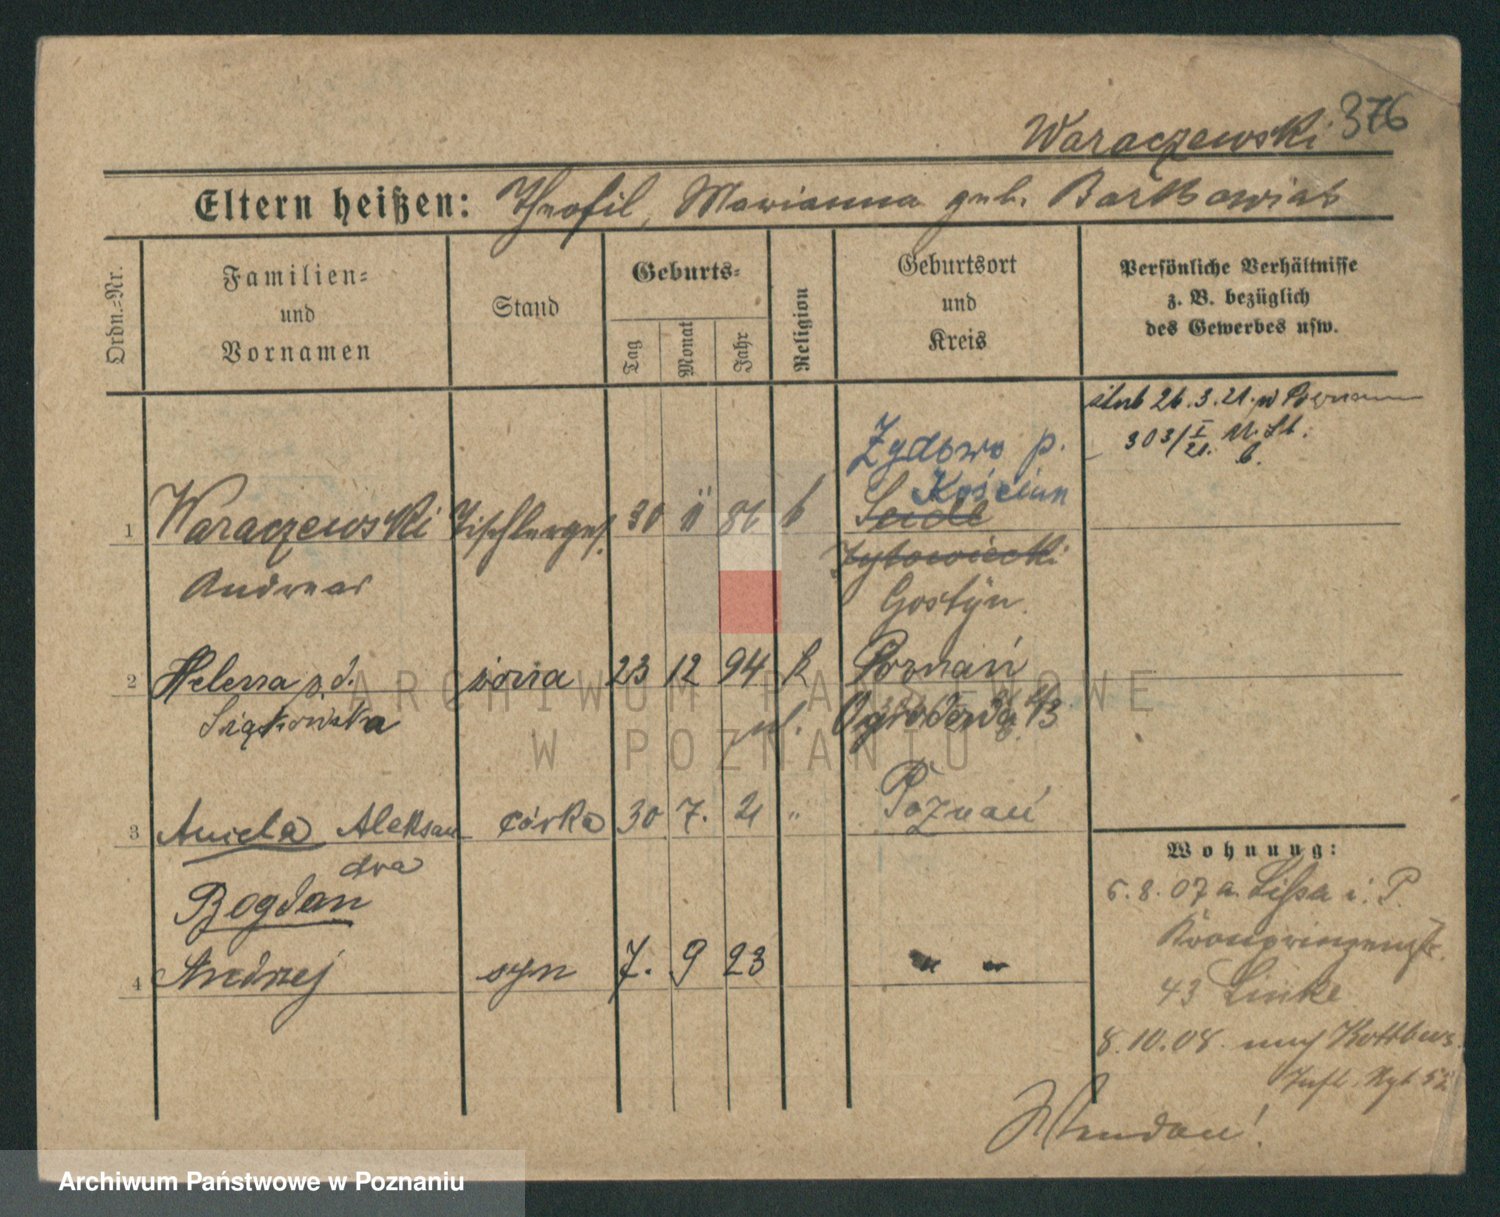 Waraczewski 376
Eltern heißen: Theofil, Marianna geb. Bartkowiak
Ordn.=Nr.
Familien=
und
Vornamen
Stand
Geburts=
Tag
Monat
Jahr
Religion
Geburtsort
und
Kreis
Persönliche Verhältnisse
z. B. bezüglich
des Gewerbes usw.
ślub 26.3.21. w Poznaniu
303/I 21.
Żydowo p.
Kościan
1 Waraczewski Tischlerges. 30 11 86 k
Andreas
Gostyn
2 Helena z d. żona 23 12 94 k Poznań
ul. Ogrodowa 13
3 Aniela Aleksan córka 30 7. 21 " Poznań
dra
Bogdan
4 Andrzej syn 7. 9 23 " "
Wohnung:
5.8.07 a. Lissa i. P.
Kronprinzenstr.
43 Linke
8.10.08. nach Kottbus
Inft. Rgt 52
ARCHIWUM PAŃSTWOWE
W POZNANIU
Archiwum Państwowe w Poznaniu